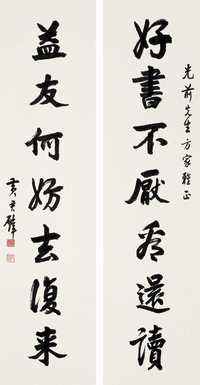 光前先生方家雅正
好書不厭看還讀
益友何妨去復來
黃君璧